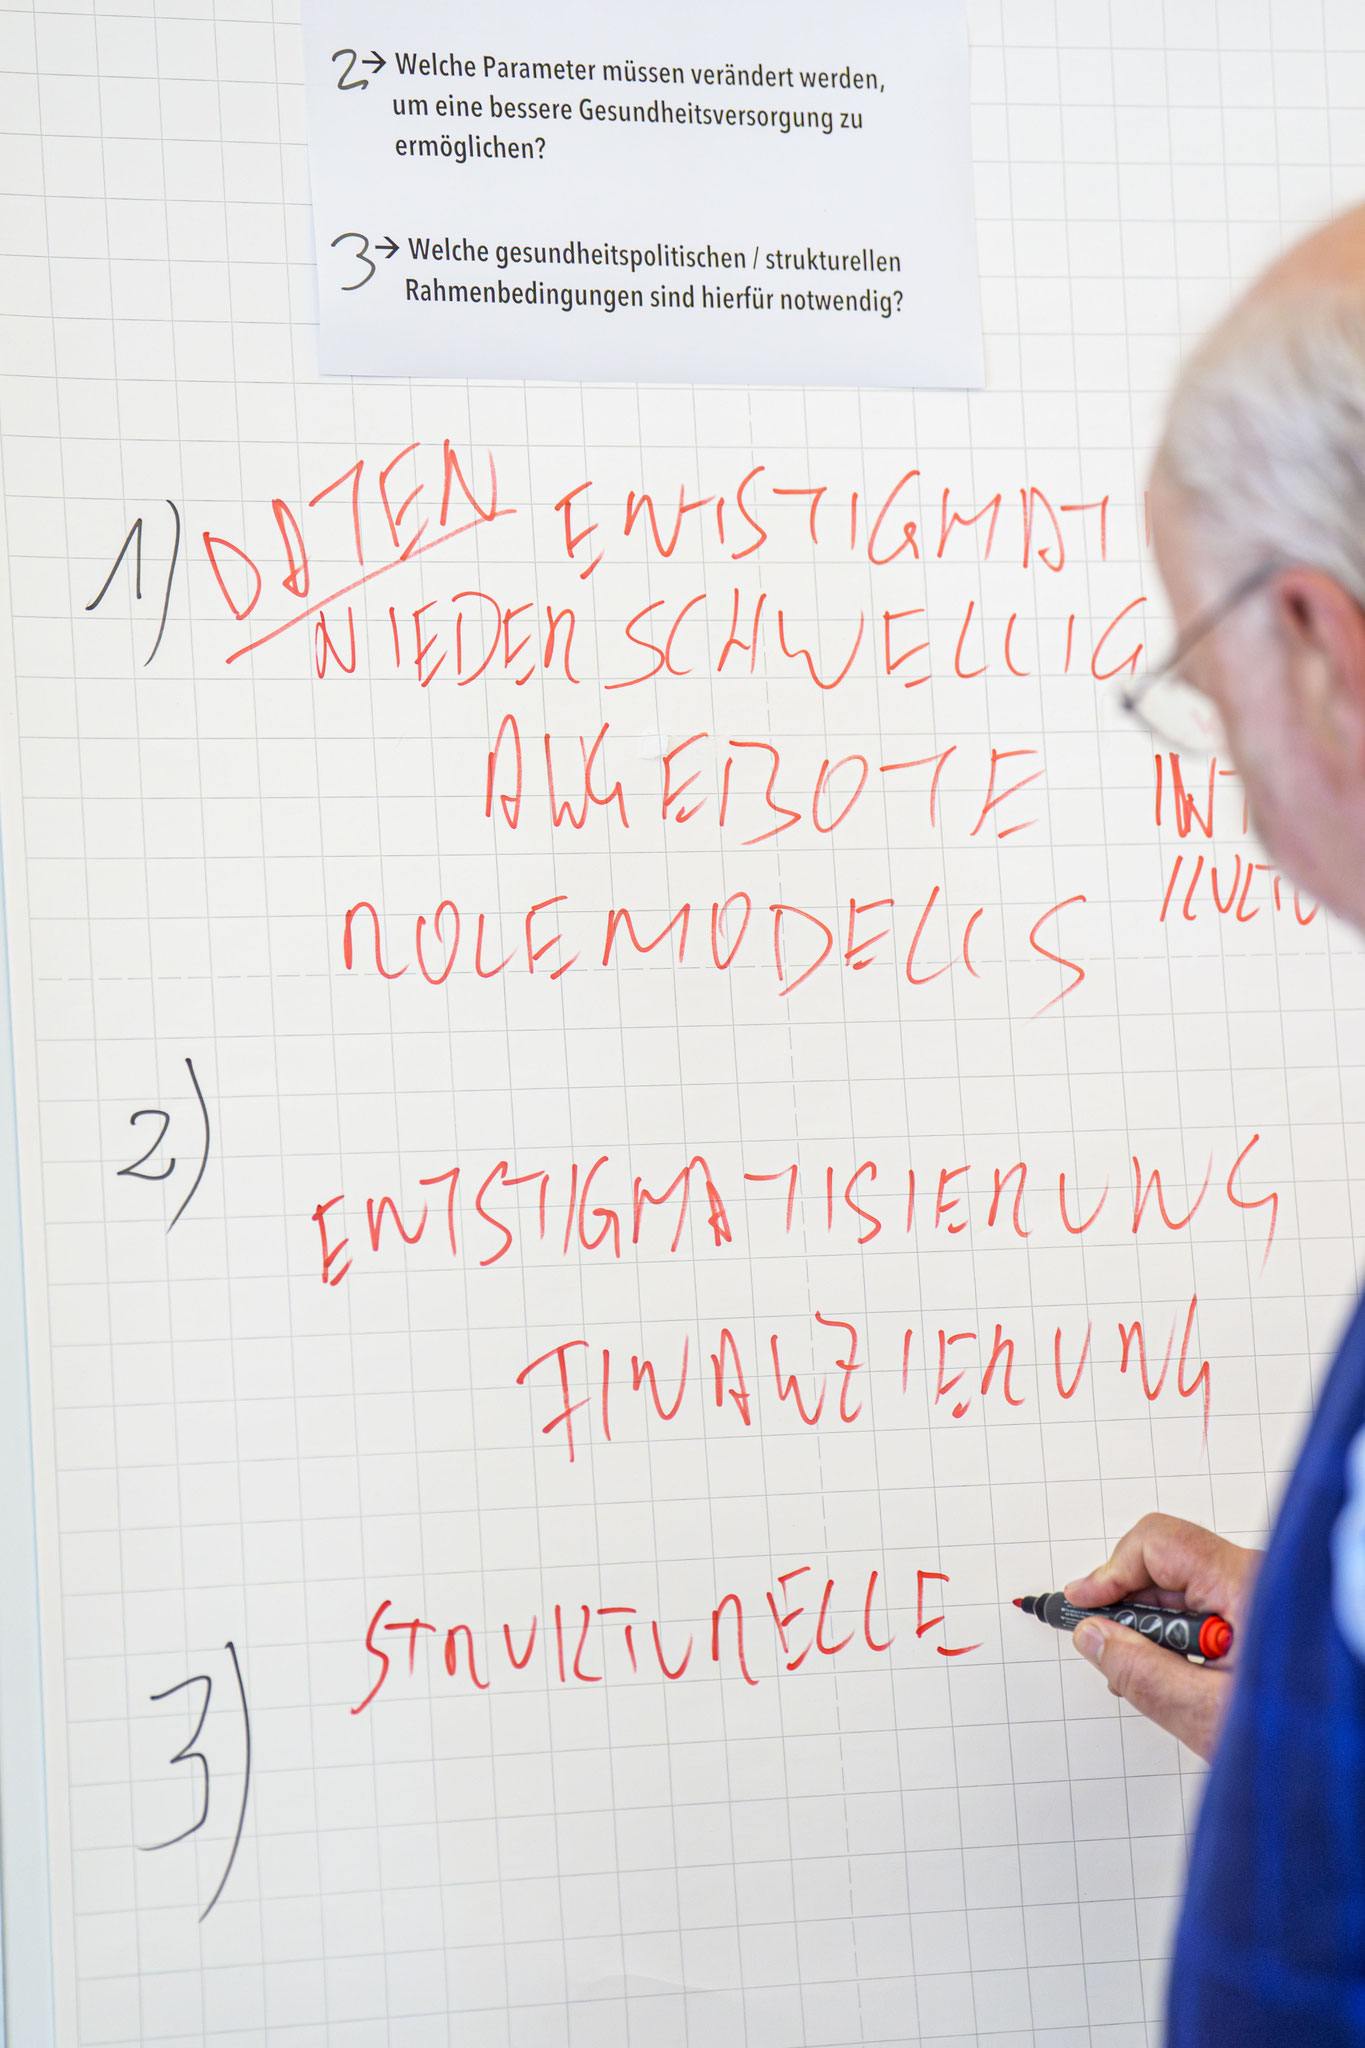 2 → Welche Parameter müssen verändert werden,
um eine bessere Gesundheitsversorgung zu
ermöglichen?
3 → Welche gesundheitspolitischen / strukturellen
Rahmenbedingungen sind hierfür notwendig?
1) DATEN ENTSTIGMATI
NIEDERSCHWELLIG
ANGEBOTE INT
KULTU
ROLEMODELLS
2)
ENTSTIGMATISIERUNG
FINANZIERUNG
3) STRUKTURELLE